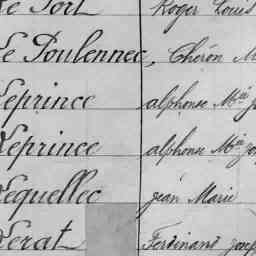 Le Port Roger Louis
Le Poulennec, Chéron M
Leprince alphonse Mie J
Leprince alphonse Mie Jo
Lequellec jean Marie
Lerat Ferdinand josep